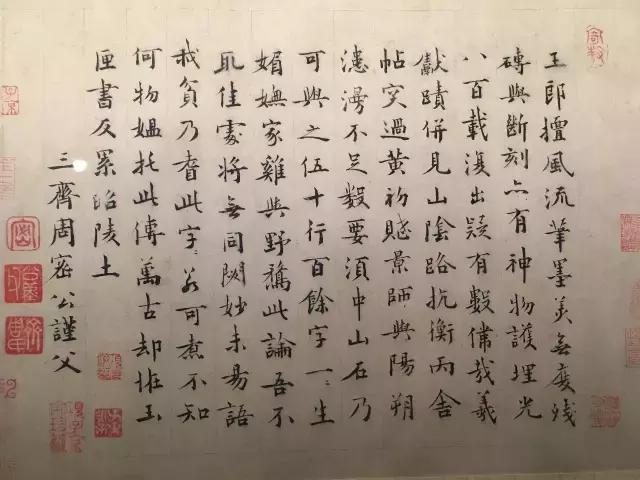 王郎擅風流筆墨美無度殘
磚與斷刻亦有神物護埋光
八百載復出疑有數偉哉羲
獻蹟併見山陰路抗衡丙舍
帖突過黃初賦景師與陽朔
漶漫不足數要須中山石乃
可與之伍十行百餘字一〻生
媚嫵家雞與野鶩此論吾不
取佳處將無同闕妙未易語
我貧乃耆此字〻若可煮不知
何物媼托此傳萬古却恠玉
匣書反累昭陵土
三齊周密公謹父